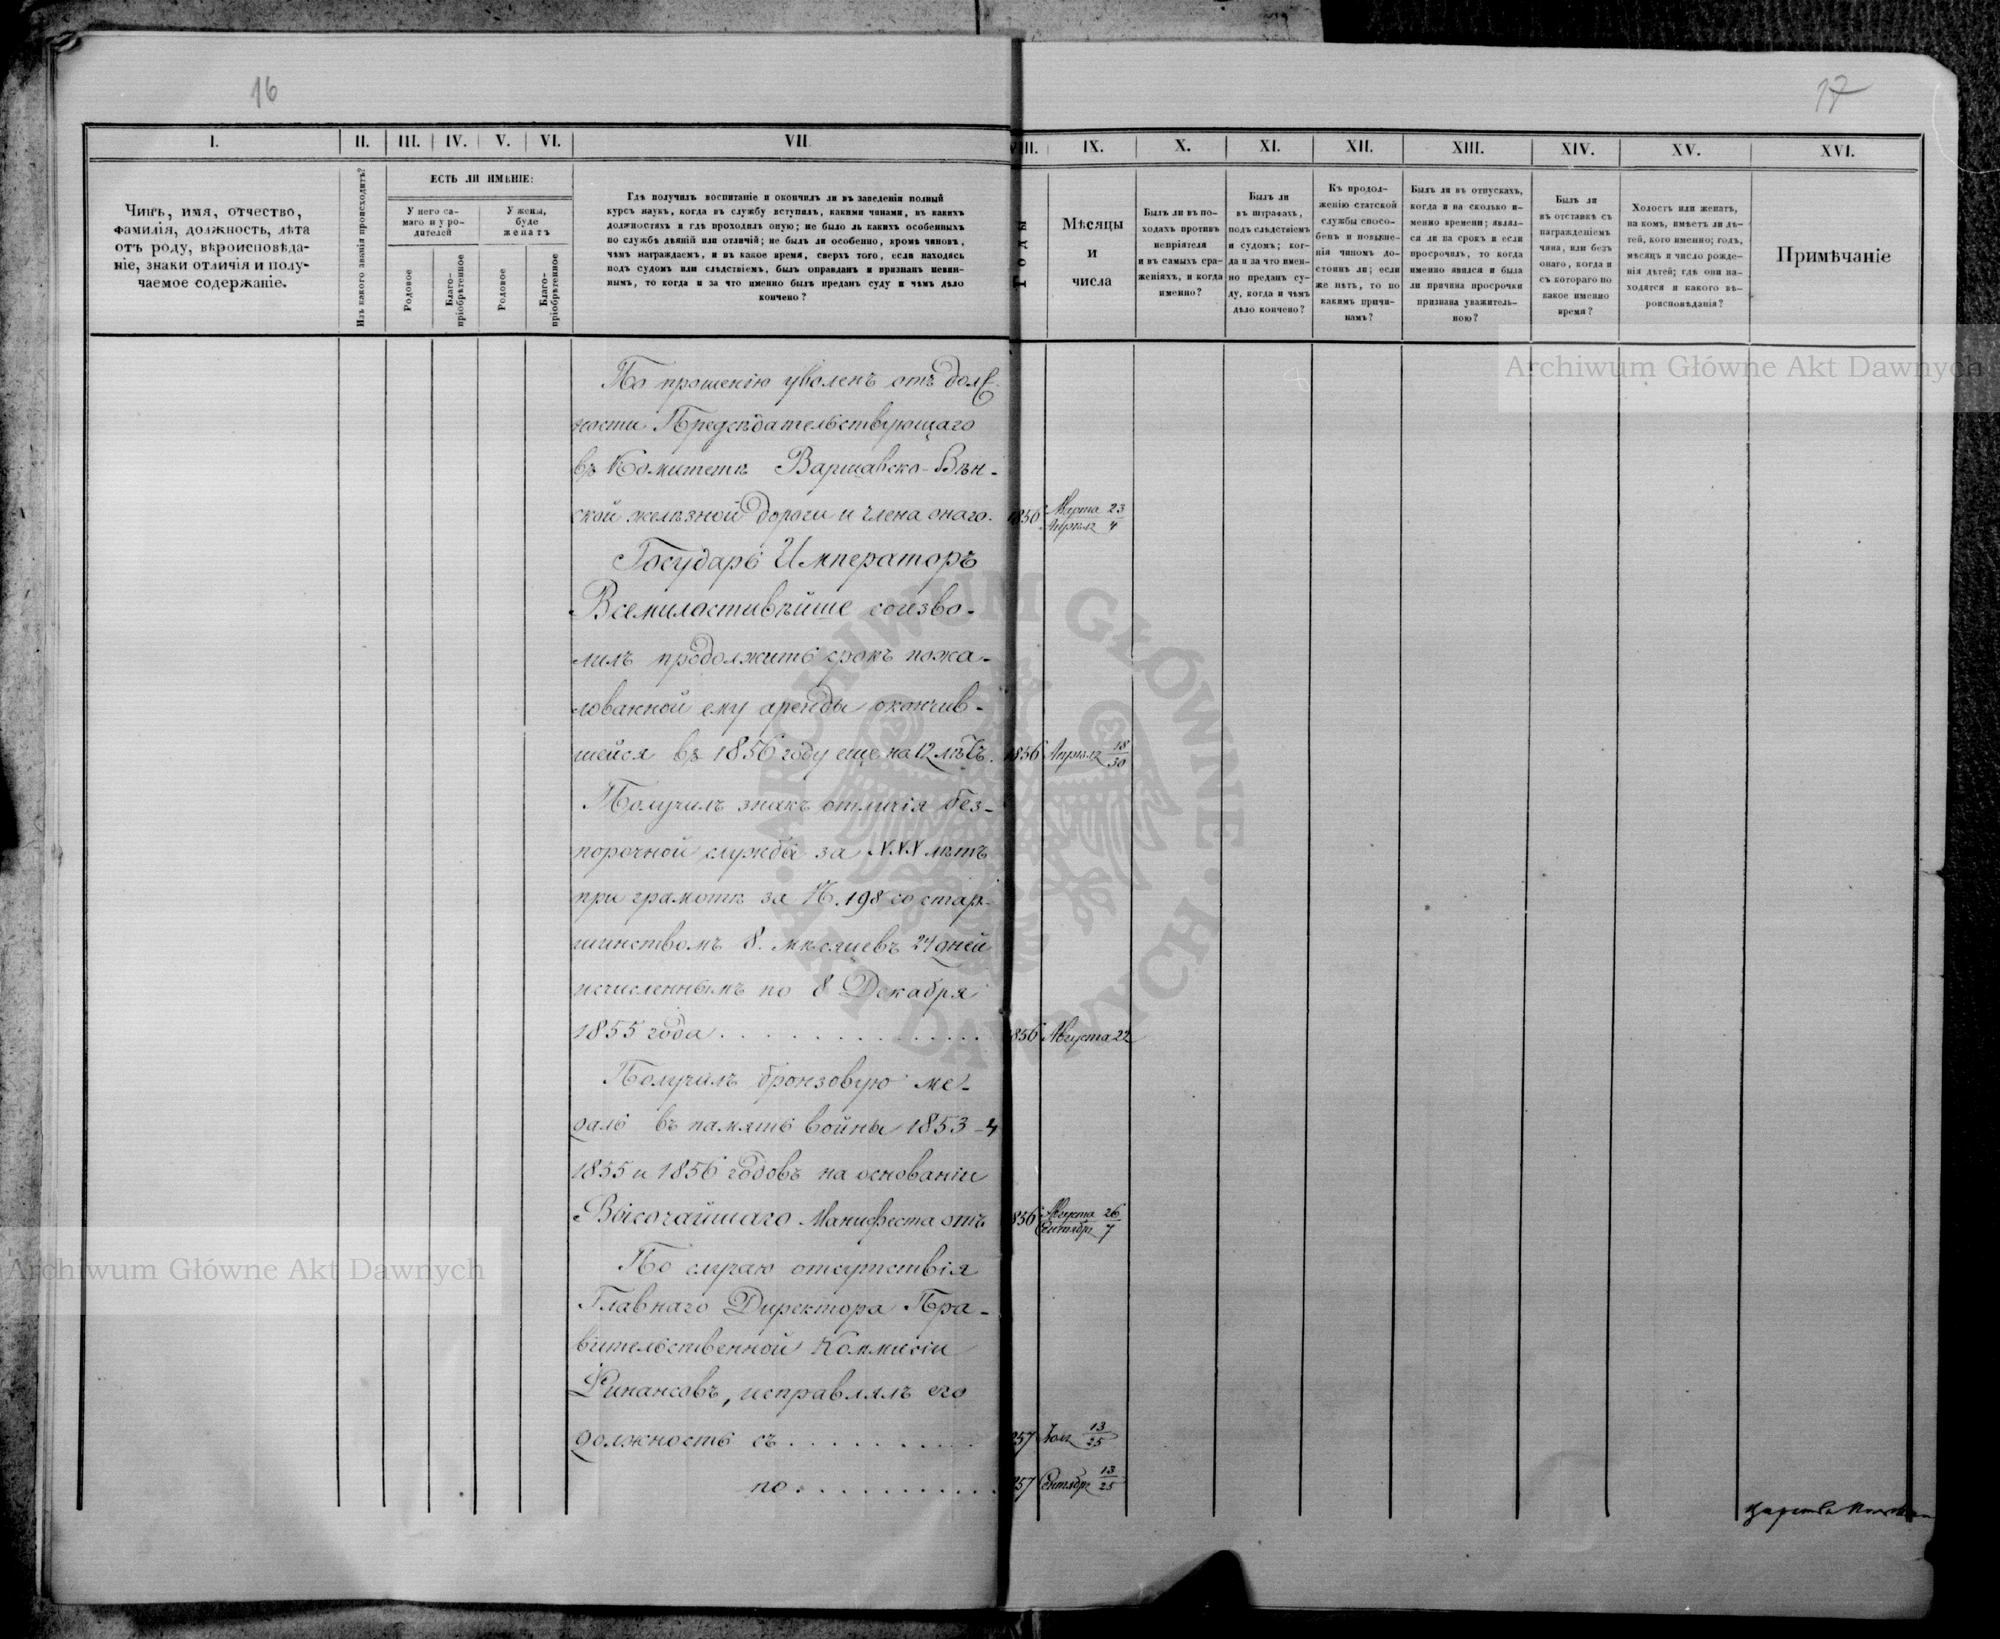 16
17
I.
II.
III.
IV.
V.
VI.
VII.
VIII.
IX.
X.
XI.
XII.
XIII.
XIV.
XV.
XVI.
Чинъ, имя, отчество,
фамилія, должность, лѣта
отъ роду, вѣроисповѣда-
ніе, знаки отличія и полу-
чаемое содержаніе.
Изъ какого званія происходитъ?
ЕСТЬ ЛИ ИМѢНІЕ:
У него са-
маго и у ро-
дителей
У жены,
буде
женатъ
Родовое
Благо-
пріобрѣтенное
Родовое
Благо-
пріобрѣтенное
Гдѣ получилъ воспитаніе и окончилъ ли въ заведеніи полный
курсъ наукъ, когда въ службу вступилъ, какими чинами, въ какихъ
должностяхъ и гдѣ проходилъ оную; не было ль какихъ особенныхъ
по службѣ дѣяній или отличій; не былъ ли особенно, кромѣ чиновъ,
чѣмъ награждаемъ, и въ какое время, сверхъ того, если находясь
подъ судомъ или слѣдствіемъ, былъ оправданъ и признанъ невин-
нымъ, то когда и за что именно былъ преданъ суду и чѣмъ дѣло
кончено?
Годы
Мѣсяцы
и
числа
Былъ ли въ по-
ходахъ противъ
непріятеля
и въ самыхъ сра-
женіяхъ, и когда
именно?
Былъ ли
въ штрафахъ,
подъ слѣдствіемъ
и судомъ; ког-
да и за что имен-
но преданъ су-
ду, когда и чѣмъ
дѣло кончено?
Къ продол-
женію статской
службы спосо-
бенъ и повыше-
нія чиномъ до-
стоинъ ли; если
же нѣтъ, то по
какимъ причи-
намъ?
Былъ ли въ отпускахъ,
когда и на сколько и-
менно времени; являл-
ся ли на срокъ и если
просрочилъ, то когда
именно явился и была
ли причина просрочки
признана уважитель-
ною?
Былъ ли
въ отставкѣ съ
награжденіемъ
чина, или безъ
онаго, когда и
съ котораго по
какое именно
время?
Холостъ или женатъ,
на комъ, имѣетъ ли дѣ-
тей, кого именно; годъ,
мѣсяцъ и число рожде-
нія дѣтей; гдѣ они на-
ходятся и какого вѣ-
роисповѣданія?
Примѣчаніе
По прошенію уволенъ отъ долж-
ности Предсѣдательствующаго
въ Комитетѣ Варшавско-Вѣн-
ской желѣзной дороги и члена онаго. 1856 Марта 23
Апрѣля 4
Государь Императоръ
Всемилостивѣйше соизво-
лилъ продолжить срокъ пожа-
лованной ему аренды окончив-
шейся въ 1856 году еще на 12 лѣтъ. 1856 Апрѣля 18/30
Получилъ знакъ отличія без-
порочной службы за XXX лѣтъ
при грамотѣ за №. 198 со стар-
шинствомъ 8. мѣсяцевъ 24 дней
исчисленнымъ по 8 Декабря
1855 года . . . . . . . . . . . . . . 1856 Августа 22
Получилъ бронзовую ме-
даль въ память войны 1853-4
1855 и 1856 годовъ на основаніи
Высочайшаго Манифеста отъ 1856 Августа 26
Сентября 7
По случаю отсутствія
Главнаго Директора Пра-
вительственной Коммисіи
Финансовъ, исправлялъ его
должность съ . . . . . . . . . . 857 Іюля 13/25
по . . . . . . . . . . . 857 Сентября 13/25
Царства Польскаго
Archiwum Główne Akt Dawnych
Archiwum Główne Akt Dawnych
ARCHIWUM GŁÓWNE · AKT DAWNYCH ·